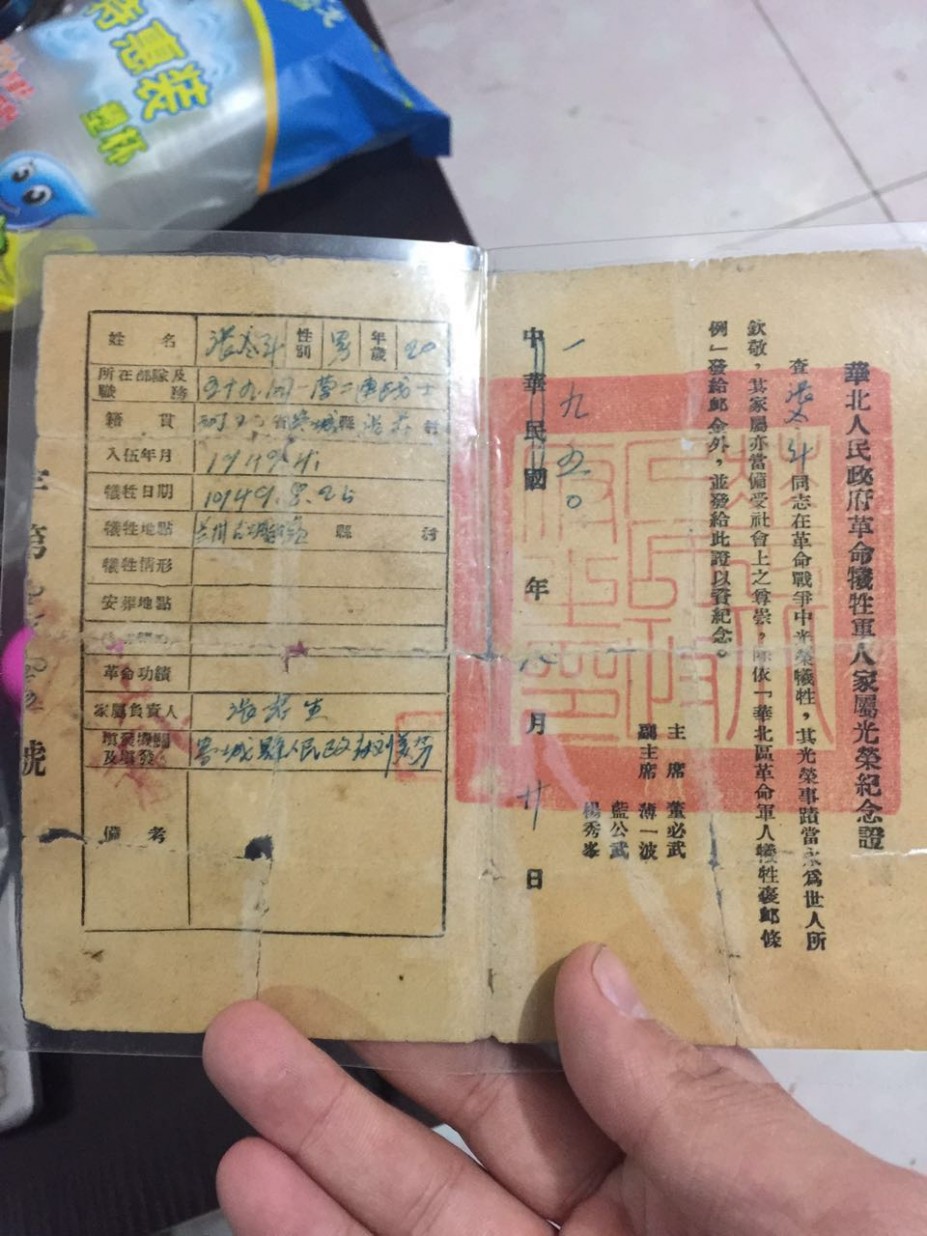 特惠装
華北人民政府革命犧牲軍人家屬光榮紀念證
查張太斗同志在革命戰爭中光榮犧牲，其光榮事蹟當永為世人所
欽敬，其家屬亦當備受社會上之尊崇，除依「華北區革命軍人犧牲褒卹條
例」發給卹金外，並發給此證以資紀念。
主席 董必武
副主席 薄一波
藍公武
楊秀峯
一九五〇
中華民國 年 八 月 廿 日
姓名 張太斗 性別 男 年歲 20
所在部隊及職務 五十九團一營二連戰士
籍貫 省 城縣 村
入伍年月 1949.4.
犧牲日期 1949.8.26
犧牲地點 蘭州 縣 村
犧牲情形
安葬地點
革命功績
家屬負責人 張
填發機關及填發 城縣人民政府
備考
字第 號